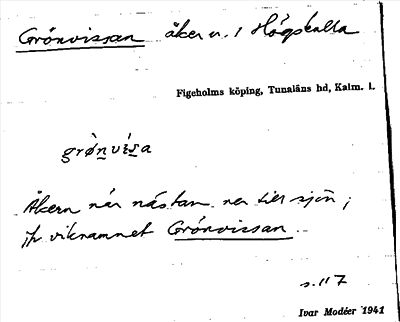 Grönvissan åker u. 1 Högskulla
Figeholms köping, Tunaläns hd, Kalm. l.
grø̀nvísa
Åkern når nästan ner till sjön;
jfr viknamnet Grönvissan
s. 117
Ivar Modéer 1941